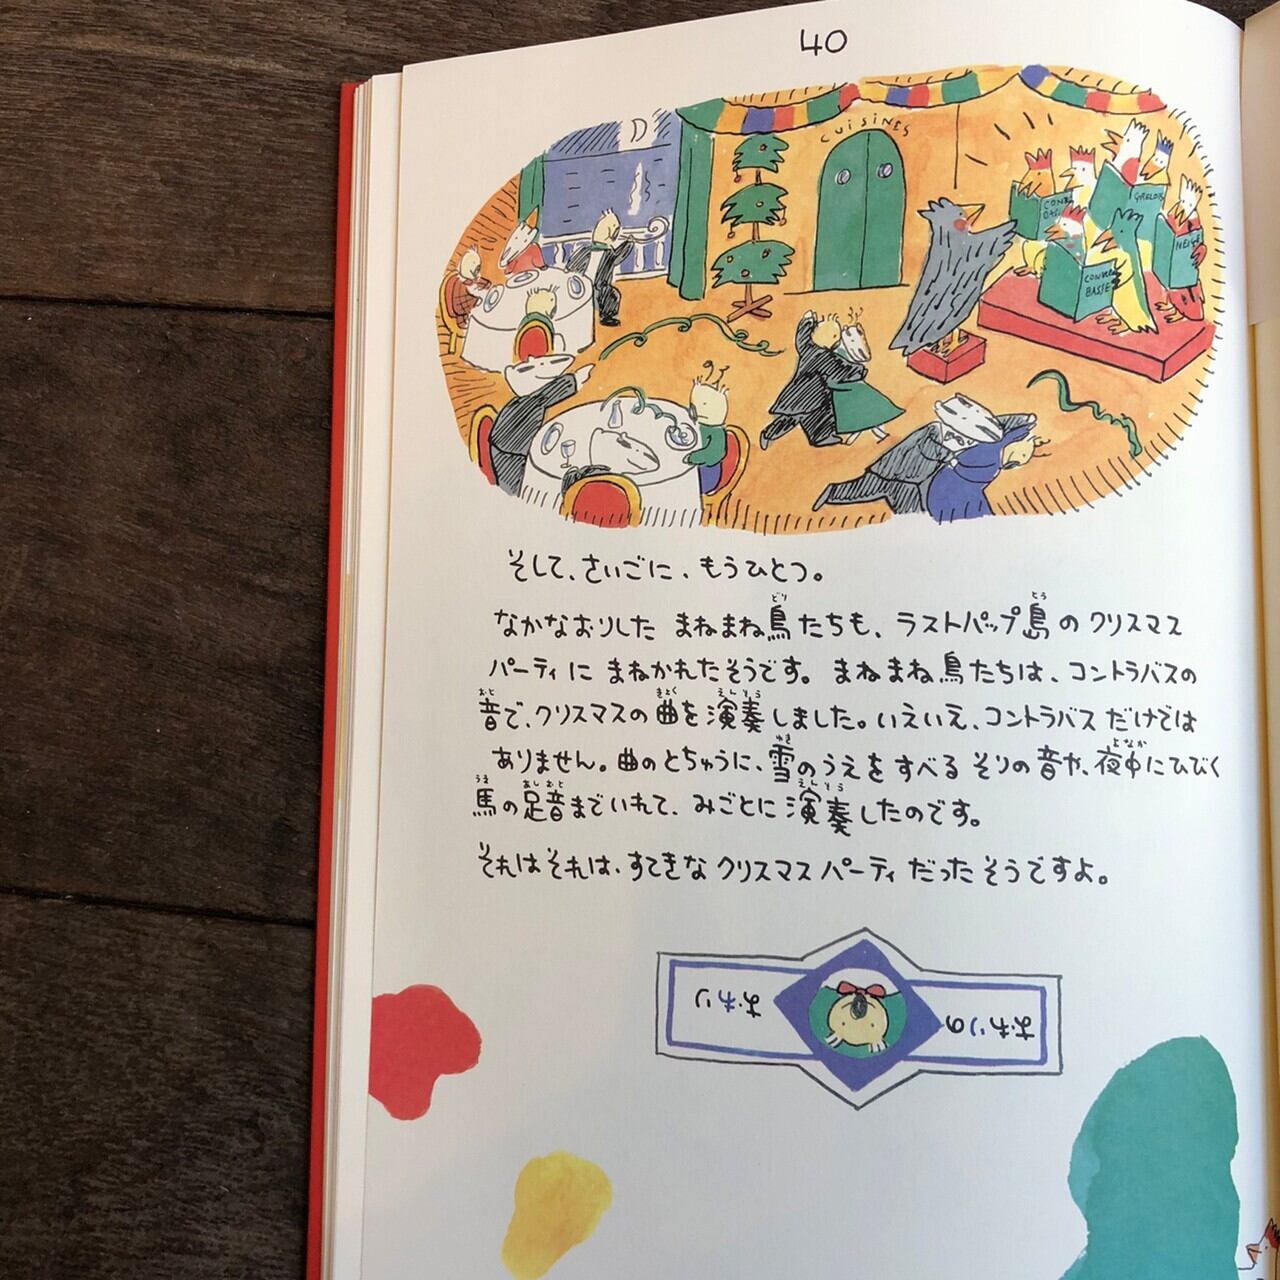 40
CUISINES
CONTREBASSE
GRELOTS
NEIGE
そして、さいごに、もうひとつ。
なかなおりした まねまね鳥たちも、ラストパップ島のクリスマス
パーティに まねかれたそうです。まねまね鳥たちは、コントラバスの
音で、クリスマスの曲を演奏しました。いえいえ、コントラバスだけでは
ありません。曲のとちゅうに、雪のうえをすべる そりの音や、夜中にひびく
馬の足音までいれて、みごとに演奏したのです。
それはそれは、すてきなクリスマスパーティだったそうですよ。
おわりの おわり